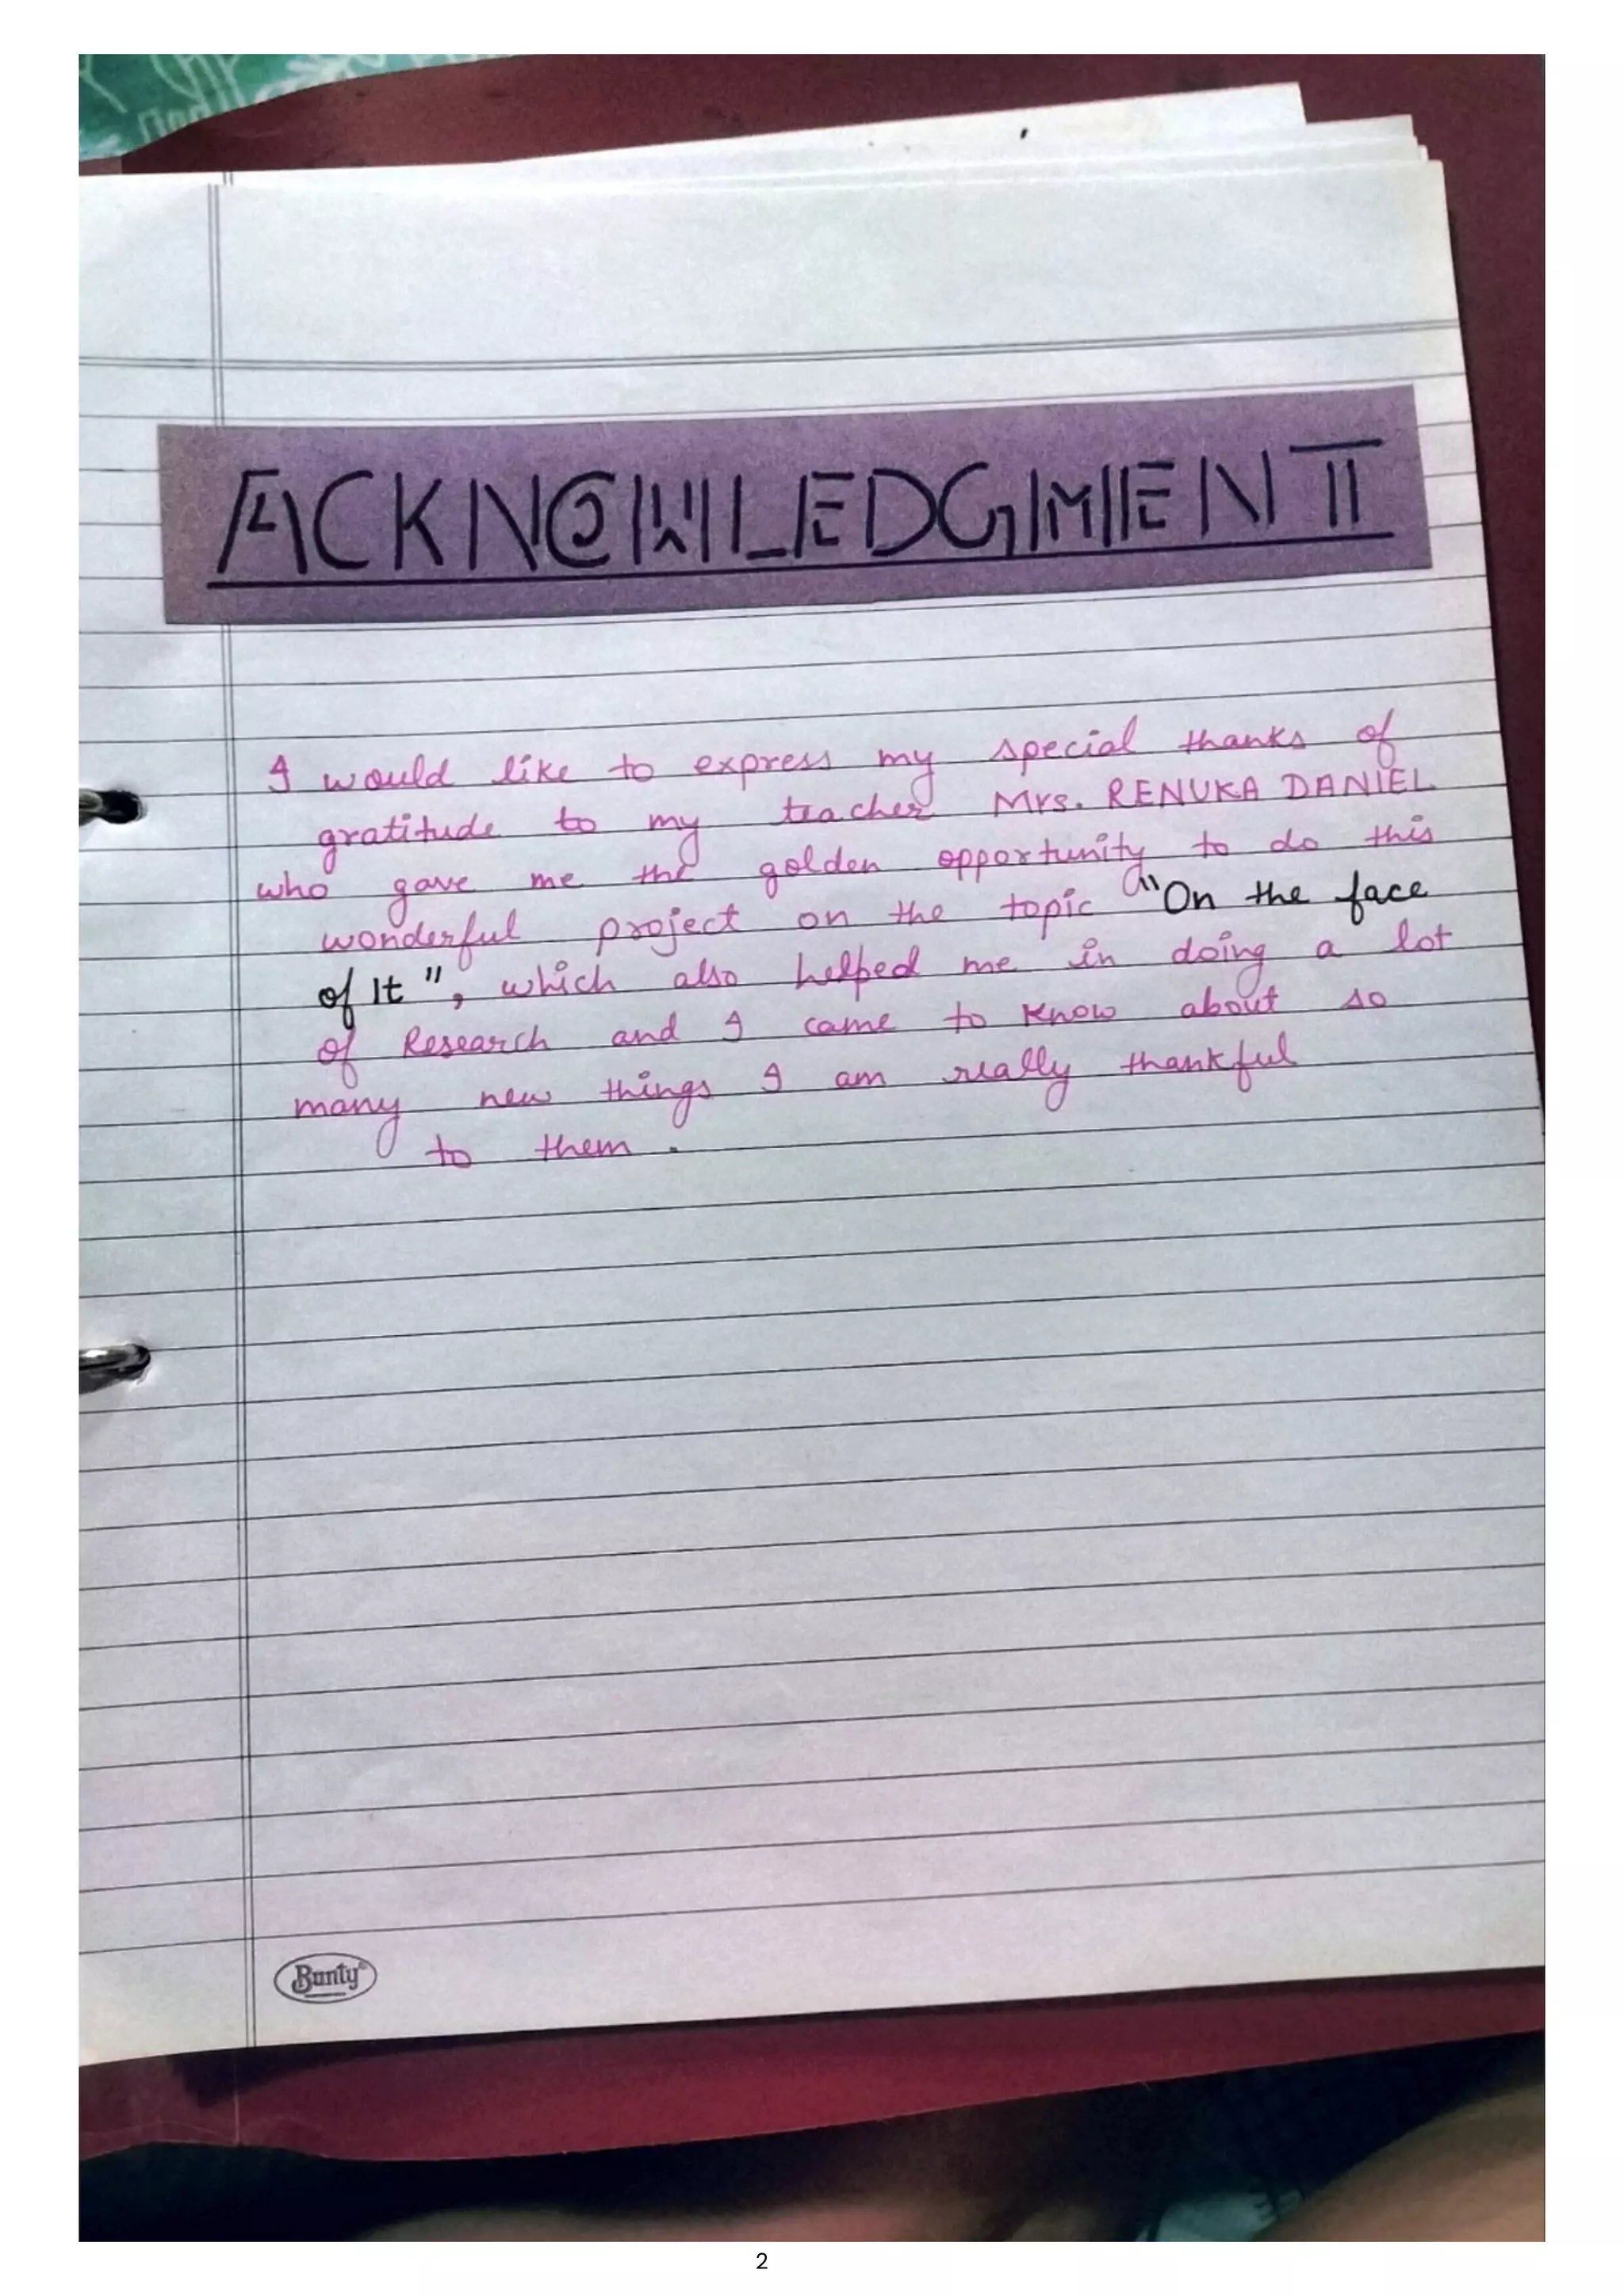 ACKNOWLEDGMENT
I would like to express my special thanks of
gratitude to my teacher Mrs. RENUKA DANIEL
who gave me the golden opportunity to do this
wonderful project on the topic "On the face
of It", which also helped me in doing a lot
of Research and I came to know about so
many new things I am really thankful
to them.
Bunty
2